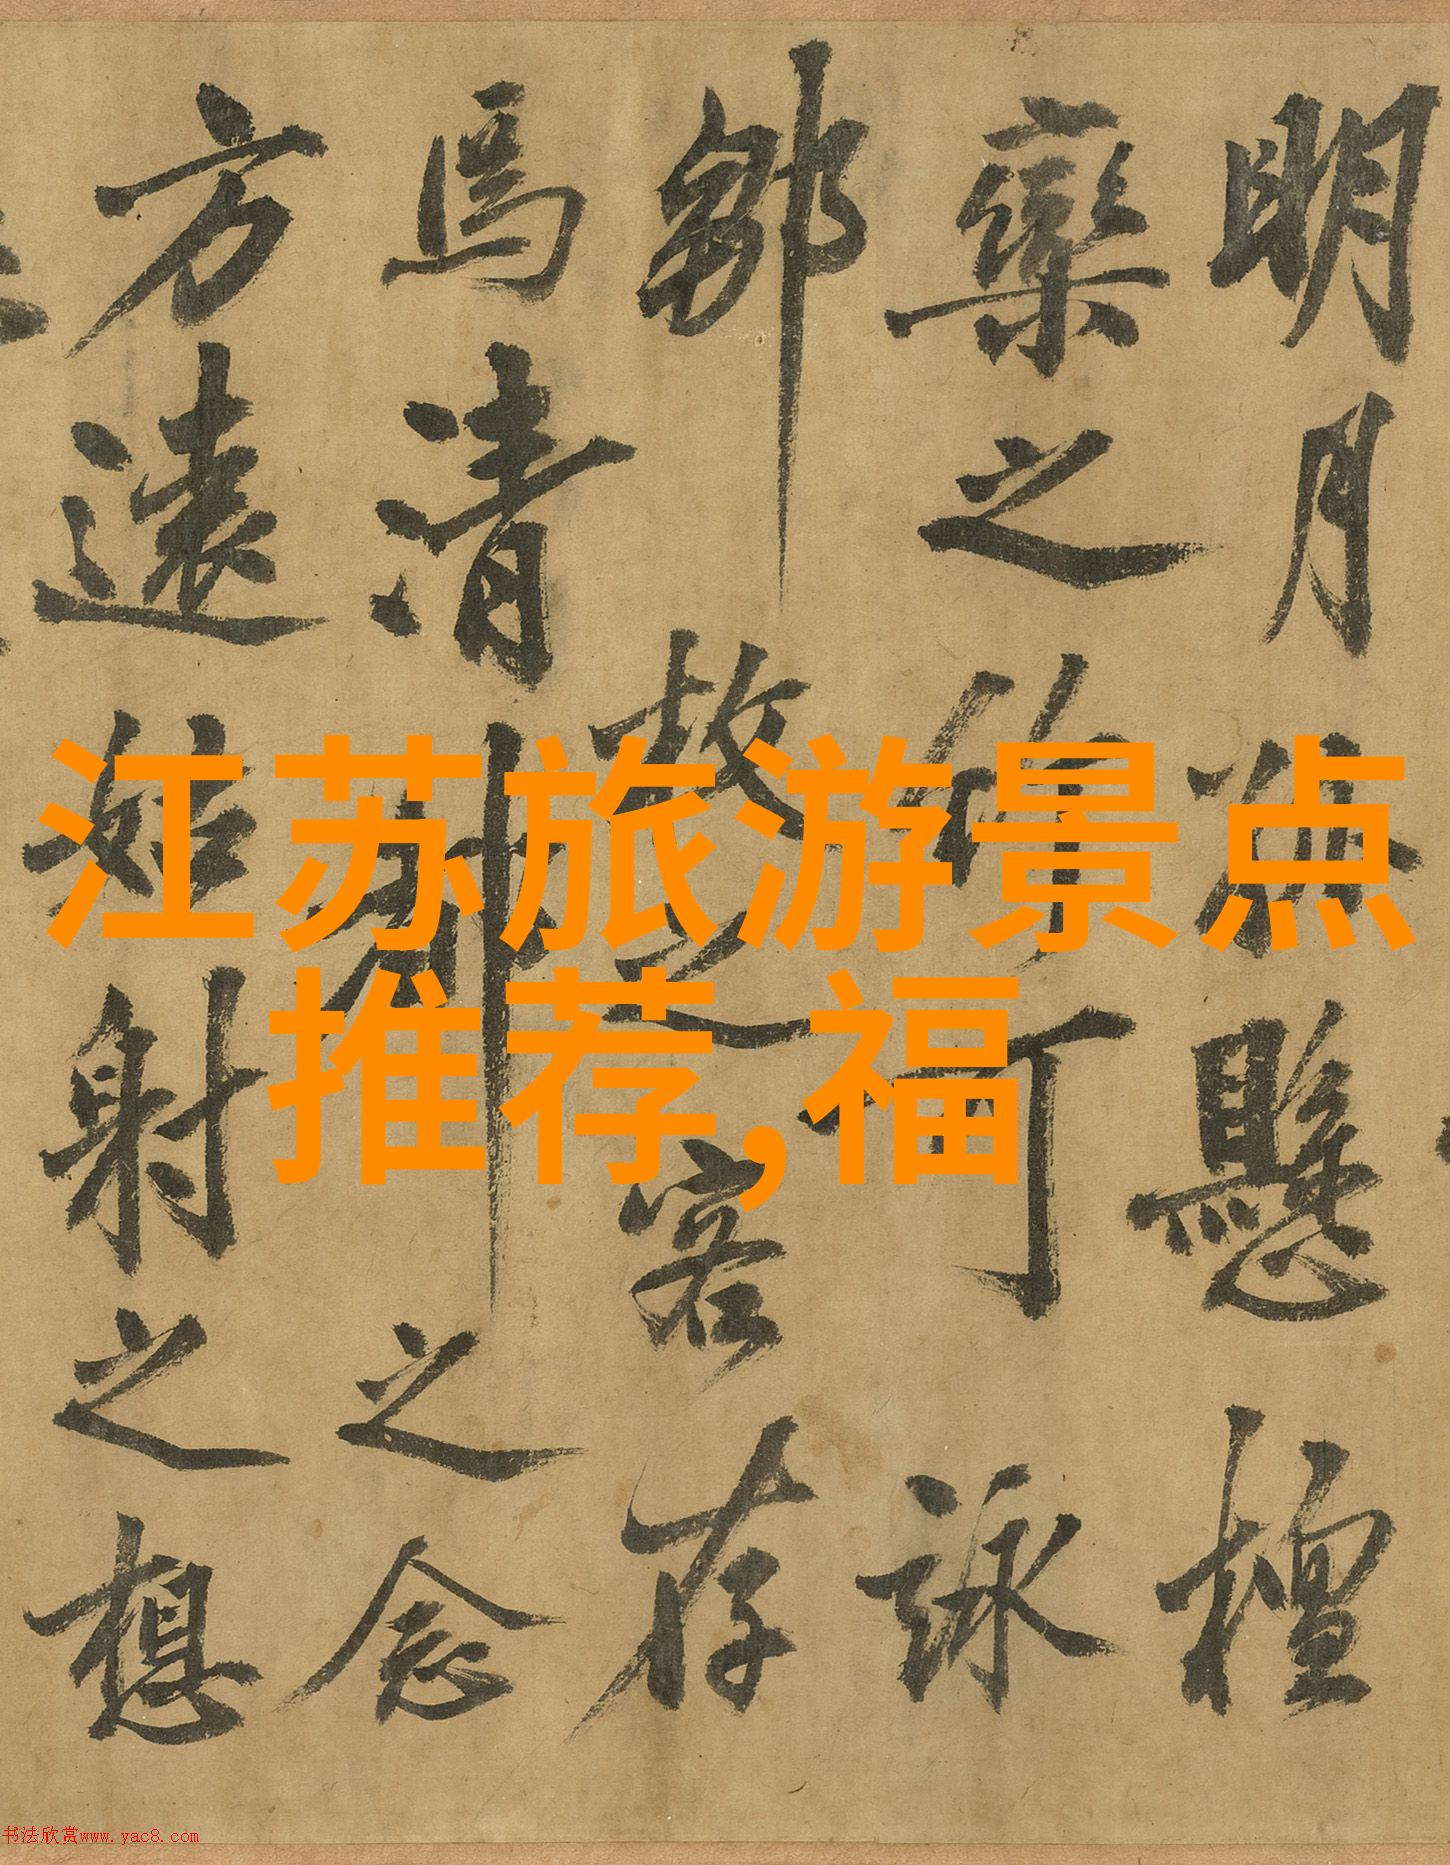 明月懸檀
欒之竹可詠
鄒之客存
焉清之念
方遠姑射之想
江苏旅游景点
推荐,福
书法欣赏www.yac8.com